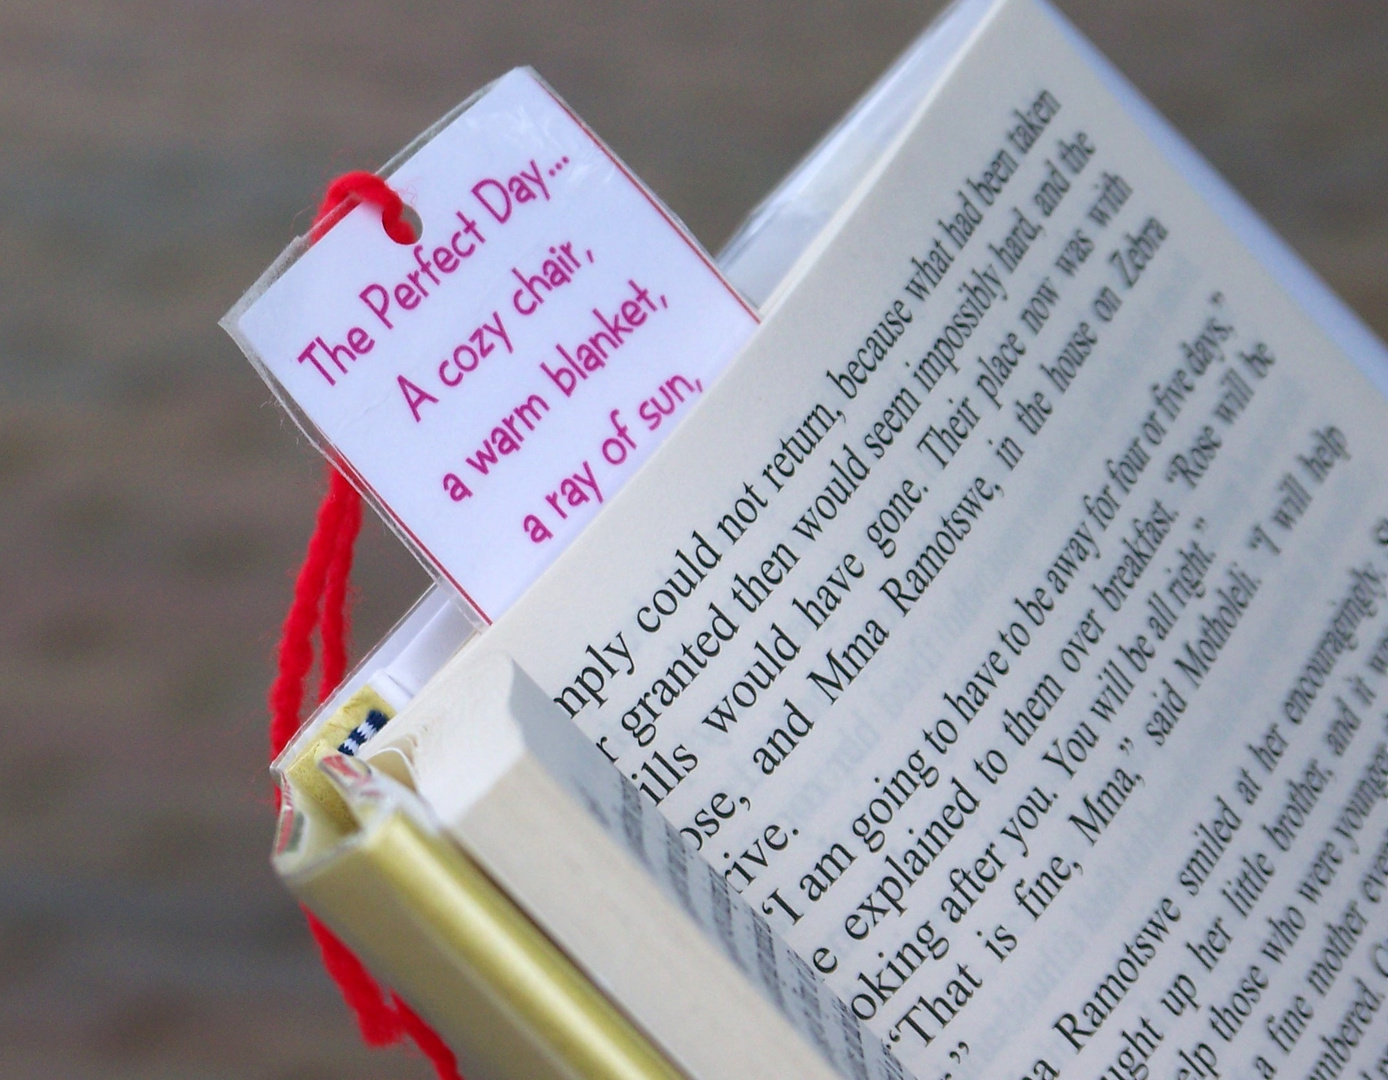 The Perfect Day...
A cozy chair,
a warm blanket,
a ray of sun,
mply could not return, because what had been taken
r granted then would seem impossibly hard, and the
ills would have gone. Their place now was with
ose, and Mma Ramotswe, in the house on Zebra
rive.
“I am going to have to be away for four or five days,”
e explained to them over breakfast. “Rose will be
oking after you. You will be all right.”
“That is fine, Mma,” said Motholeli. “I will help
r.”
a Ramotswe smiled at her encouragingly. S
ught up her little brother, and it w
elp those who were younger
a fine mother eve
mbered.